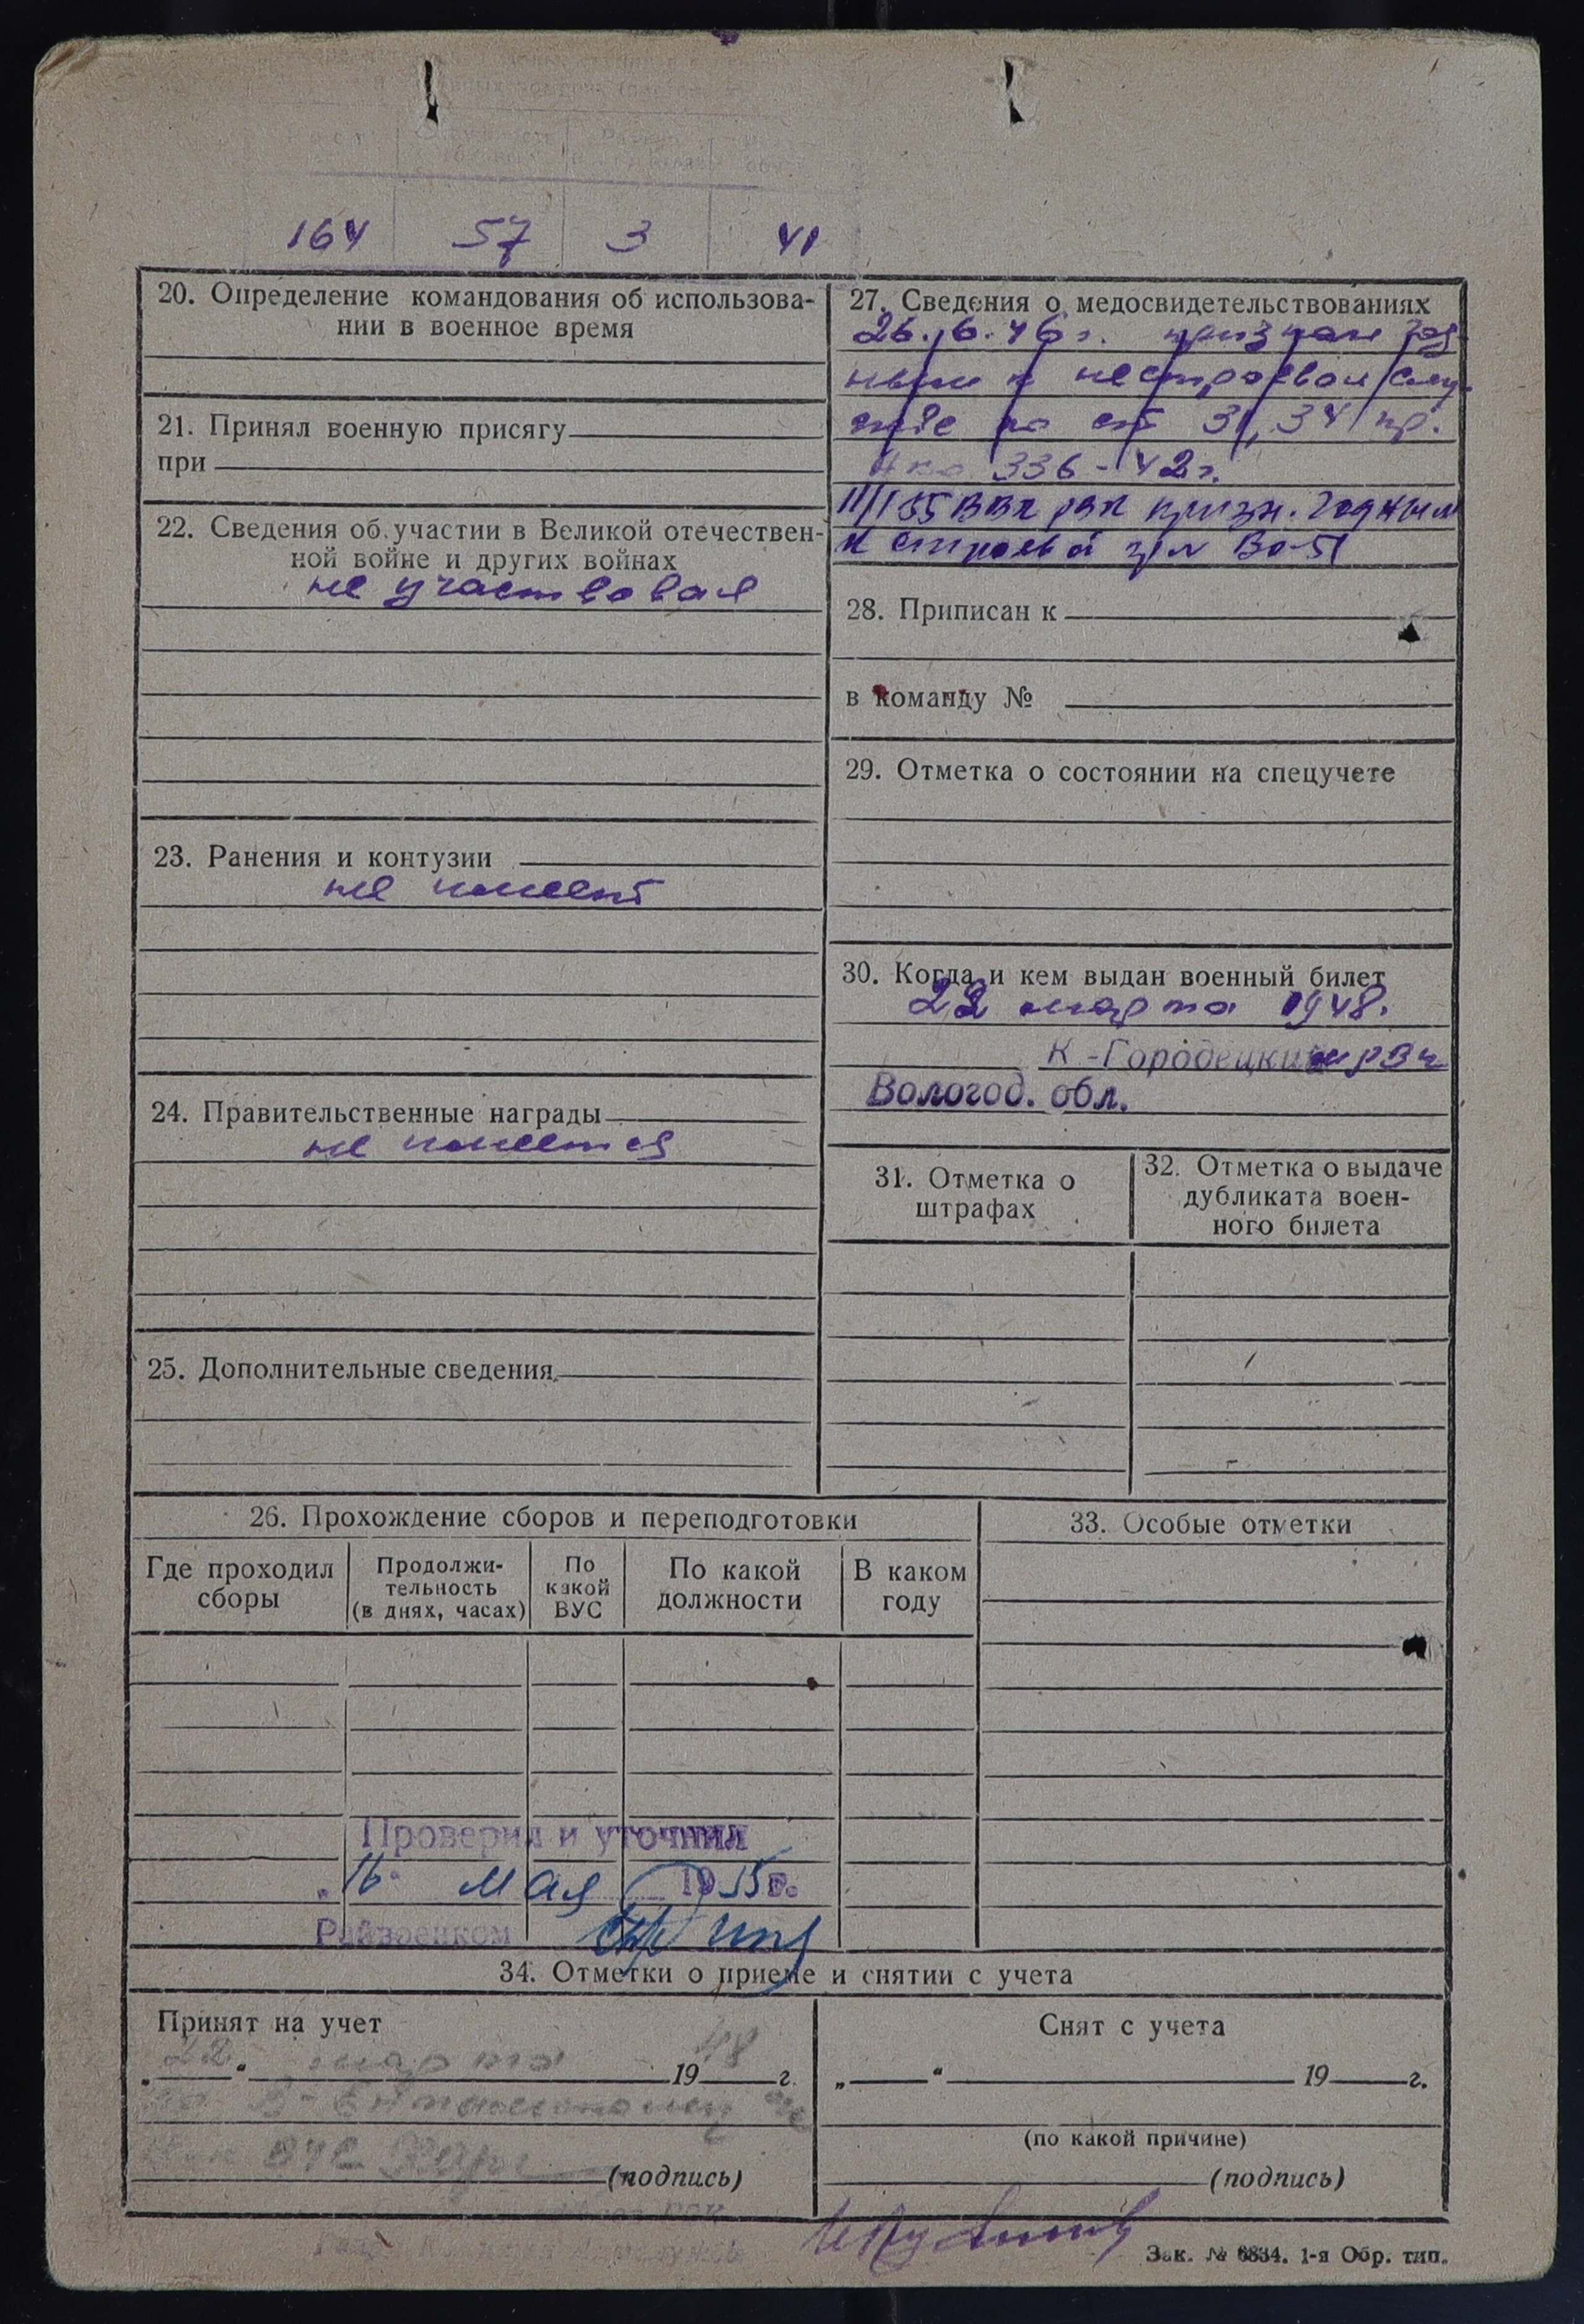 164 57 3 41
20. Определение командования об использова-
нии в военное время
21. Принял военную присягу
при
22. Сведения об участии в Великой отечествен-
ной войне и других войнах
не участвовал
23. Ранения и контузии
не имеет
24. Правительственные награды
не имеется
25. Дополнительные сведения
27. Сведения о медосвидетельствованиях
26.6.46 г. признан год
ным к нестроевой слу
жбе по ст 31, 34 пр.
336-42 г.
11/I 55 ВВК РВК призн. годным
к строевой
28. Приписан к
в команду №
29. Отметка о состоянии на спецучете
30. Когда и кем выдан военный билет
22 марта 1948.
К-Городецким РВК
Вологод. обл.
31. Отметка о
штрафах
32. Отметка о выдаче
дубликата воен-
ного билета
26. Прохождение сборов и переподготовки
Где проходил
сборы
Продолжи-
тельность
(в днях, часах)
По
какой
ВУС
По какой
должности
В каком
году
33. Особые отметки
Проверил и уточнил
„16" мая 1955 г.
Райвоенком
34. Отметки о приеме и снятии с учета
Принят на учет
„22" марта 1948 г.
(подпись)
Снят с учета
„ " 19 г.
(по какой причине)
(подпись)
Зак. № 6834. 1-я Обр. тип.